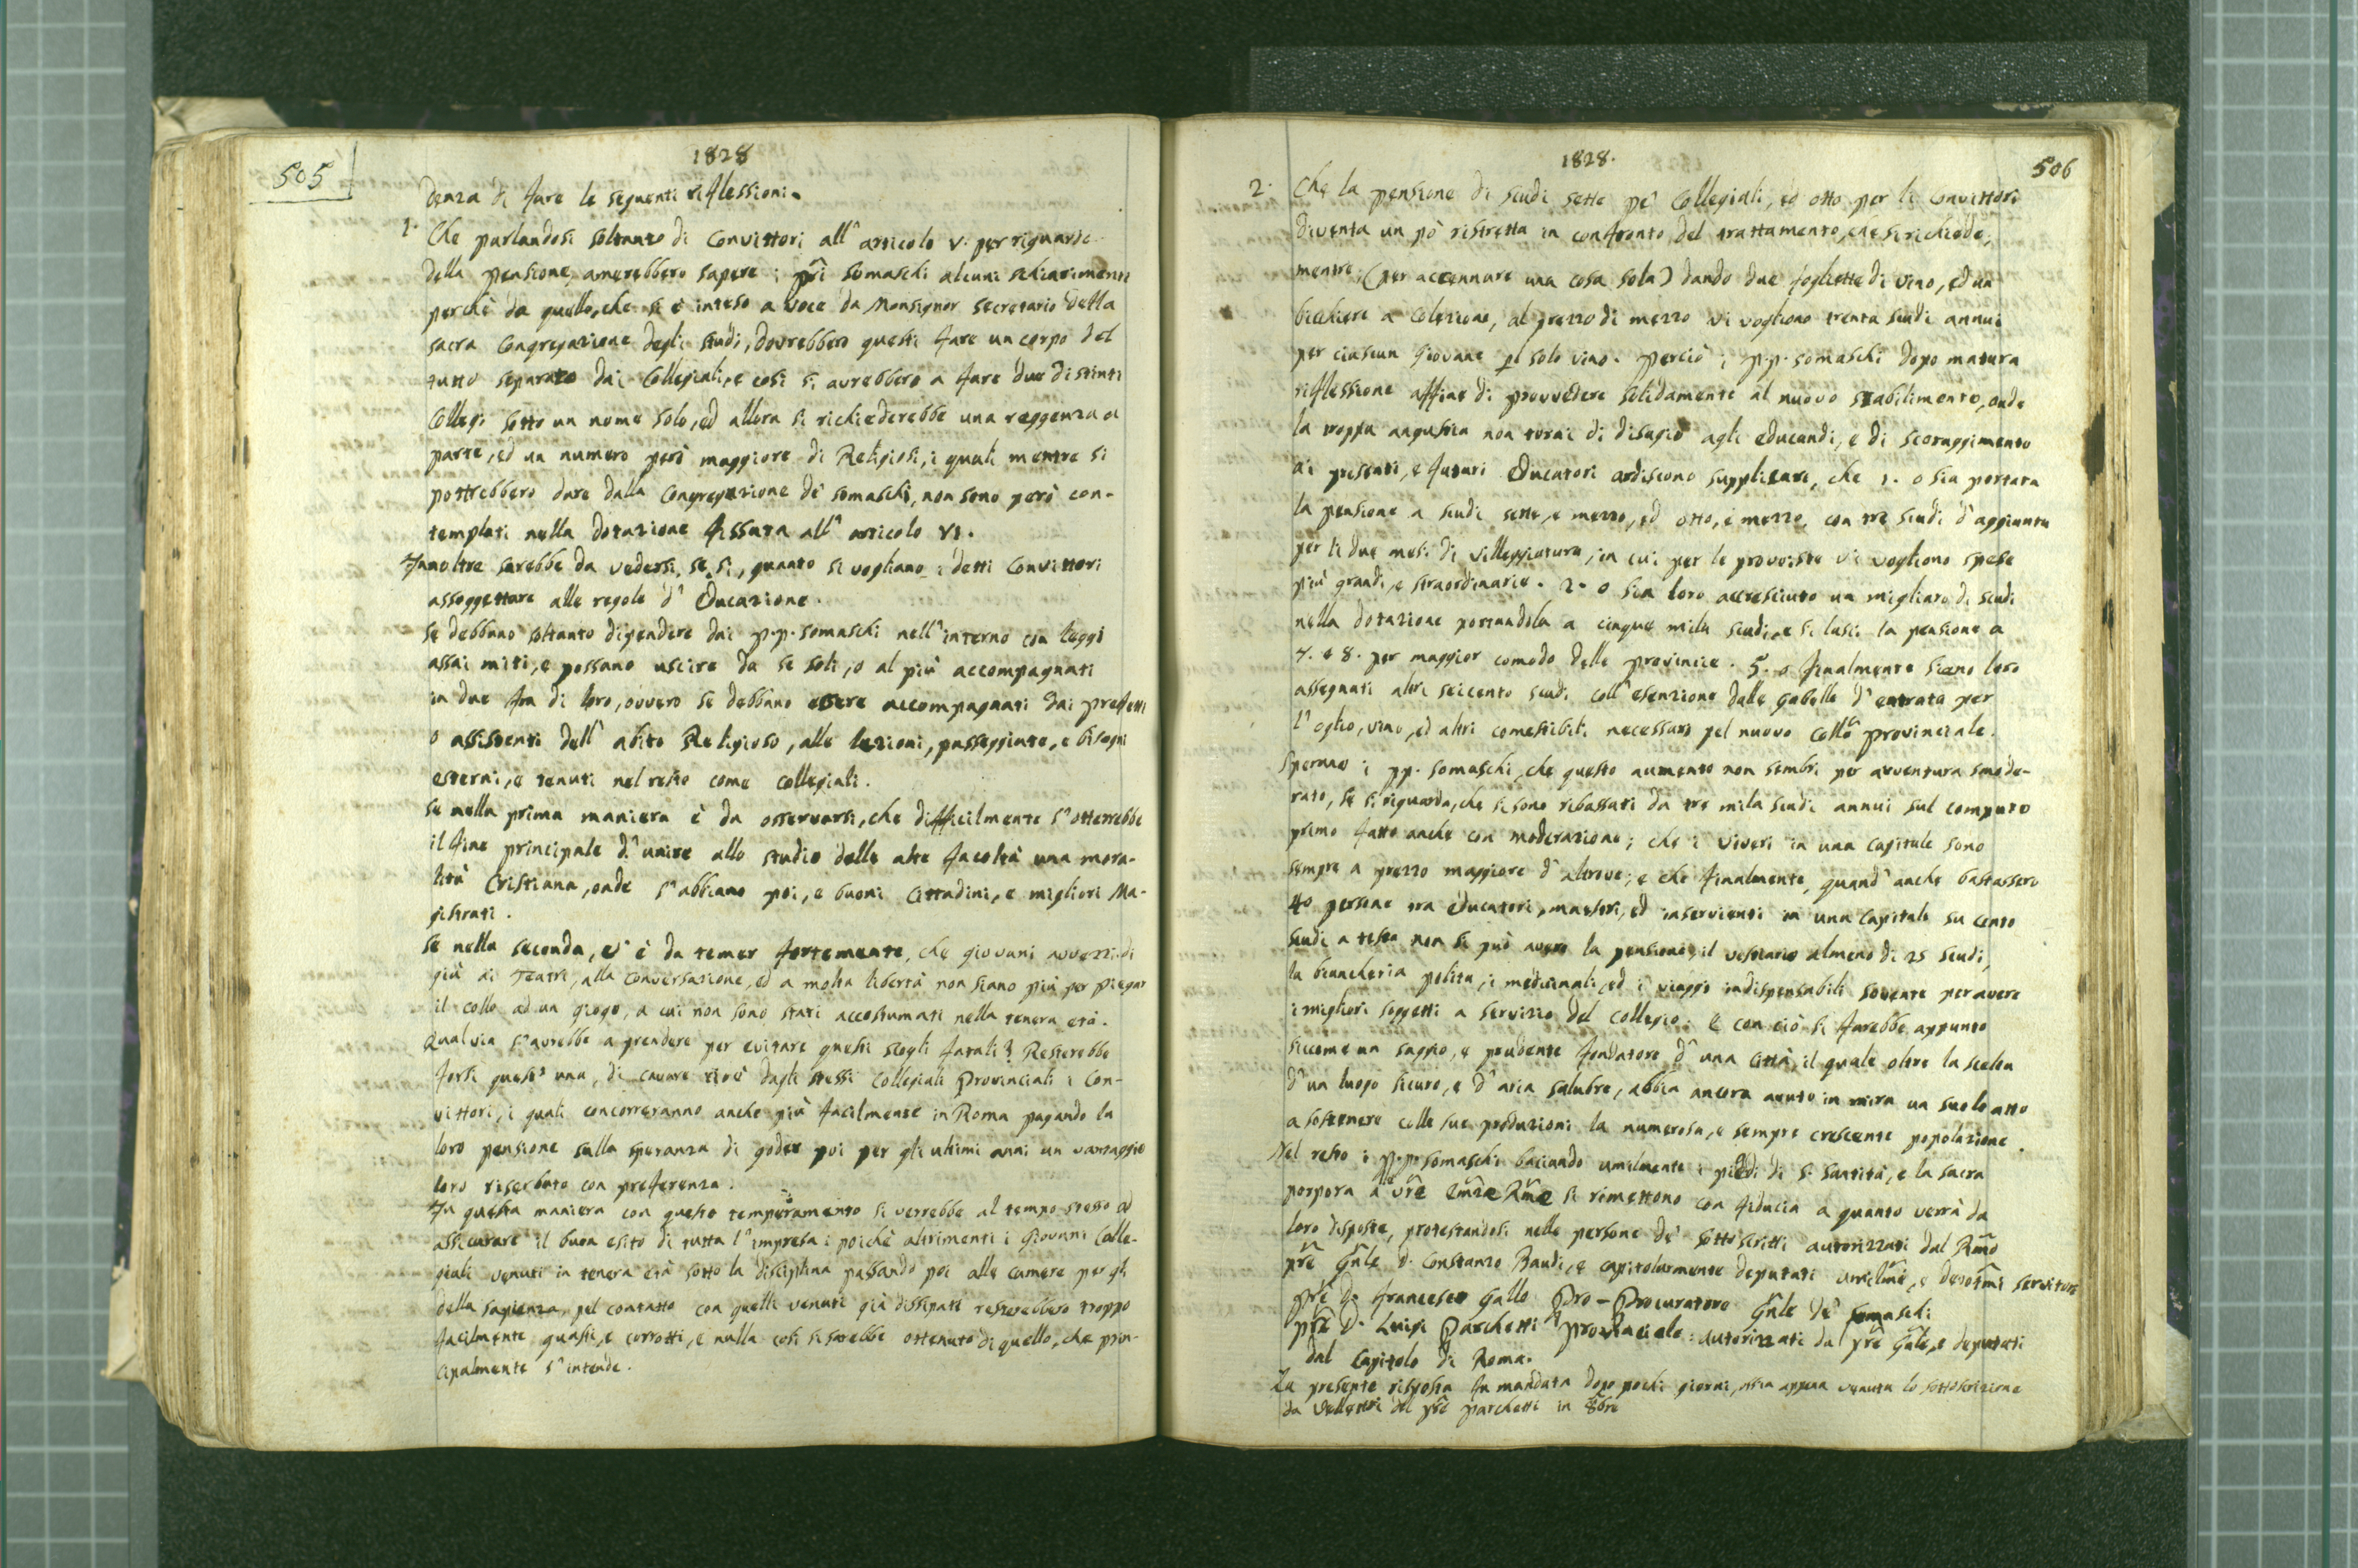 505
1828
denza di fare le seguenti riflessioni.
1. Che parlandosi soltanto di Convittori all' articolo V. per riguardo
della pensione, amerebbero sapere i pri Somaschi alcuni schiarimenti
perchè da quello, che si è inteso a voce da Monsignor Secretario della
sacra Congregazione degli studi, dovrebbero questi fare un corpo del
tutto separato dai Collegiali, e così si avrebbero a fare due distinti
Collegi sotto un nome solo, ed allora si richiederebbe una reggenza a
parte, ed un numero però maggiore di Religiosi, i quali mentre si
potrebbero dare dalla Congregazione de' Somaschi, non sono però con-
templati nella dotazione fissata all' articolo VI.
Innoltre sarebbe da vedersi, se si, quanto si vogliano i detti Convittori
assoggettare alle regole d' Educazione.
se debbano soltanto dipendere dai P.P. Somaschi nell' interno con leggi
assai miti, e possano uscire da se soli, o al più accompagnati
in due fra di loro, ovvero se debbano essere accompagnati dai prefetti
o assistenti dell' abito Religioso, alle lezioni, passeggiate, e bisogni
esterni, e tenuti nel resto come collegiali.
se nella prima maniera è da osservarsi, che difficilmente s' otterrebbe
il fine principale d' unire allo studio delle alte facoltà una mora-
lità Cristiana, onde s' abbiano poi, e buoni Cittadini, e migliori Ma-
gistrati.
se nella seconda, v' è da temer fortemente, che giovani avvezzi di
già ai Teatri, alla conversazione, ed a molta libertà non siano più per piegar
il collo ad un giogo, a cui non sono stati accostumati nella tenera età.
Qual via s' avrebbe a prendere per evitare questi scogli fatali? Resterebbe
forsi quest' una, di cavare cioè dagli stessi Collegiali Provinciali i Con-
vittori, i quali concorreranno anche più facilmente in Roma pagando la
loro pensione sulla speranza di goder poi per gli ultimi anni un vantaggio
loro riserbato con preferenza.
In questa maniera con questo temperamento si verrebbe al tempo stesso ad
assicurare il buon esito di tutta l' impresa: poichè altrimenti i Giovani Colle-
giali venuti in tenera età sotto la disciplina passando poi alle camere per gli
della sapienza, pel contatto con quelli venuti già dissipati resterebbero troppo
facilmente guasti, e corrotti, e nulla così si sarebbe ottenuto di quello, che prin-
cipalmente s' intende.
1828.
506
2. Che la pensione di scudi sette pe' Collegiali, ed otto per li Convittori
diventa un pò ristretta in confronto del trattamento, che si richiede,
mentre (per accennare una cosa sola) dando due fogliette di vino, ed un
bicchiere a colezione, al prezzo di mezzo vi vogliono trenta scudi annui
per ciascun Giovane pel solo vino. Perciò i P.P. Somaschi dopo matura
riflessione affine di provvedere solidamente al nuovo stabilimento, onde
la troppa angustia non torni di disagio agli educandi, e di scoraggimento
ai presenti, e futuri Educatori ardiscono supplicare, che 1. o sia portata
la pensione a scudi sette, e mezzo, ed otto, e mezzo, con tre scudi d' aggiunta
per li due mesi di villeggiatura, in cui per le provviste vi vogliono spese
più grandi, e straordinarie. 2. o sia loro accresciuto un migliaro di scudi
nella dotazione portandola a cinque mila scudi, e si lasci la pensione a
7. e 8. per maggior comodo delle provincie. 5. o finalmente siano loro
assegnati altri seicento scudi coll' esenzione dalle gabelle d' entrata per
l' oglio, vino, ed altri comestibili necessarj pel nuovo Collo provinciale.
Sperano i pp. Somaschi, che questo aumento non sembri per avventura smode-
rato, se si riguarda, che si sono ribassati da tre mila scudi annui sul computo
primo fatto anche con moderazione; che i viveri in una capitale sono
sempre a prezzo maggiore d' altrove; e che finalmente, quand' anche bastassero
40 persone tra educatori, maestri, ed inservienti in una capitale su cento
scudi a testa non si può avere la pensione, il vestiario almeno di 25 scudi,
la biancheria polita, i medicinali, ed i viaggi indispensabili sovente per avere
i migliori soggetti a servizio del collegio. E con ciò si farebbe appunto
siccome un saggio, e prudente fondatore d' una Città, il quale oltre la scelta
d' un luogo sicuro, e d' aria salubre, abbia ancora avuto in mira un suolo atto
a sostenere colle sue produzioni la numerosa, e sempre crescente popolazione.
Nel resto i P.P. Somaschi baciando umilmente i piedi di S. Santità, e la sacra
porpora a vre Emze Rme si rimettono con fiducia a quanto verrà da
loro disposto, protestandosi nelle persone de' sottoscritti autorizzati dal Rmo
pre Gnle D. Costanzo Baudi, e capitolarmente deputati umilmi, e devotmi servitori
pre D. Francesco Gallo Pro-Procuratore Gnle de' Somaschi
pre D. Luigi Parchetti Provinciale: autorizzati dal pre Gnle, e deputati
dal Capitolo di Roma.
La presente risposta fu mandata dopo pochi giorni, ossia appena venuta la sottoscrizione
da Velletri del pre Parchetti in 8bre